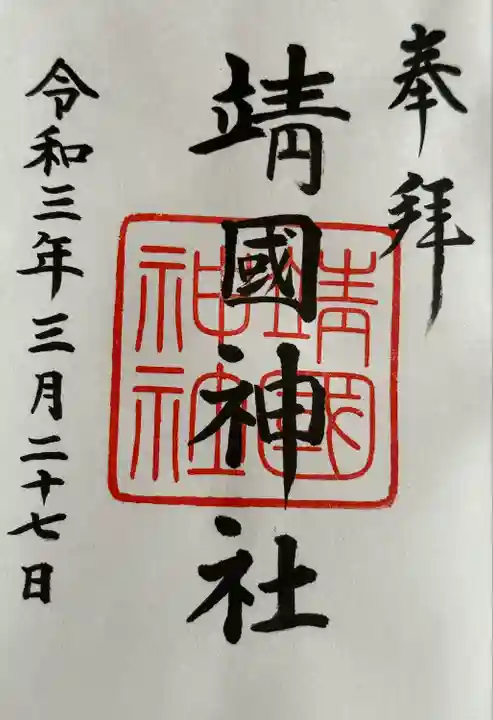 奉拝
靖國神社
靖國神社
令和三年三月二十七日